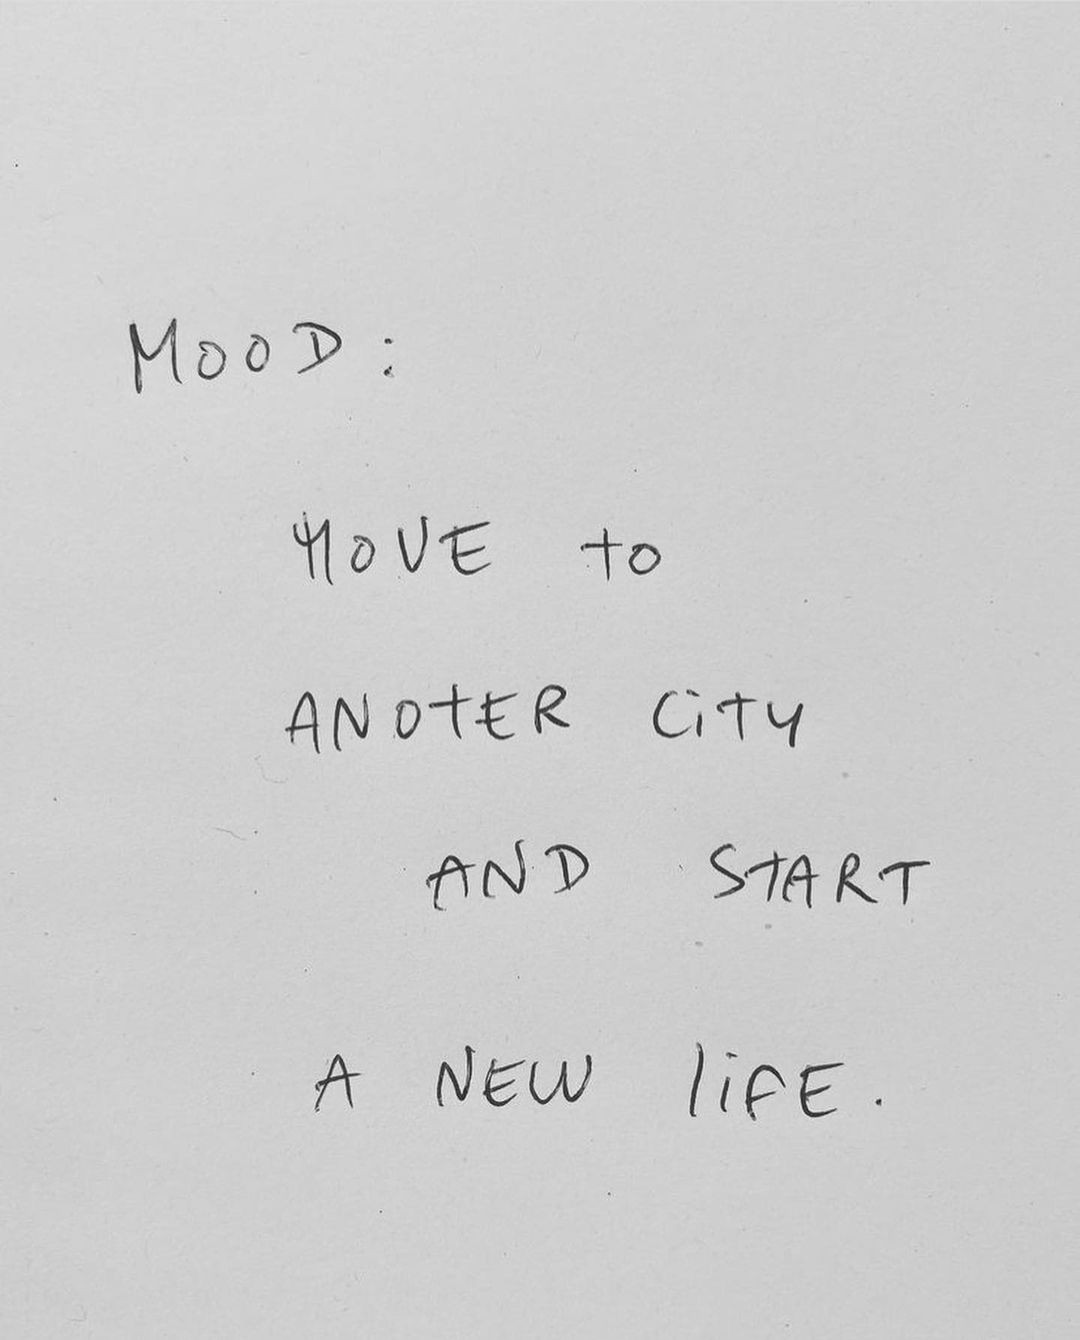 MOOD:
MOVE to
ANOtER CiTY
AND START
A NEW liFE.